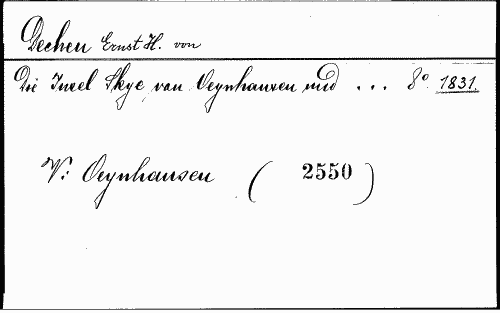 Dechen Ernst H. von
Die Insel Skye von Oeynhausen und ... 8° 1831.
V: Oeynhausen (2550)